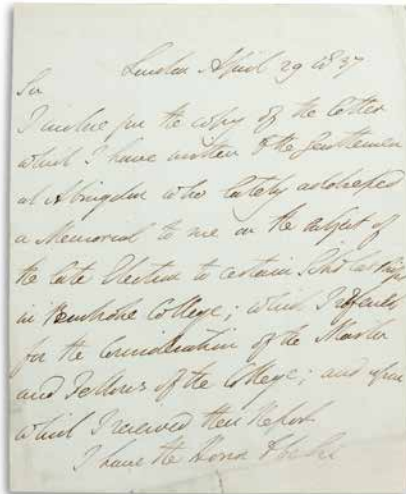 London April 29 1837
Sir
I enclose you the copy of the letter
which I have written to the Gentlemen
at Abingdon who lately addressed
a Memorial to me on the subject of
the late Election to certain Scholarships
in Pembroke College; which I referred
for the Consideration of the Master
and Fellows of the College; and upon
which I received their Report
I have the Honor to be Sir